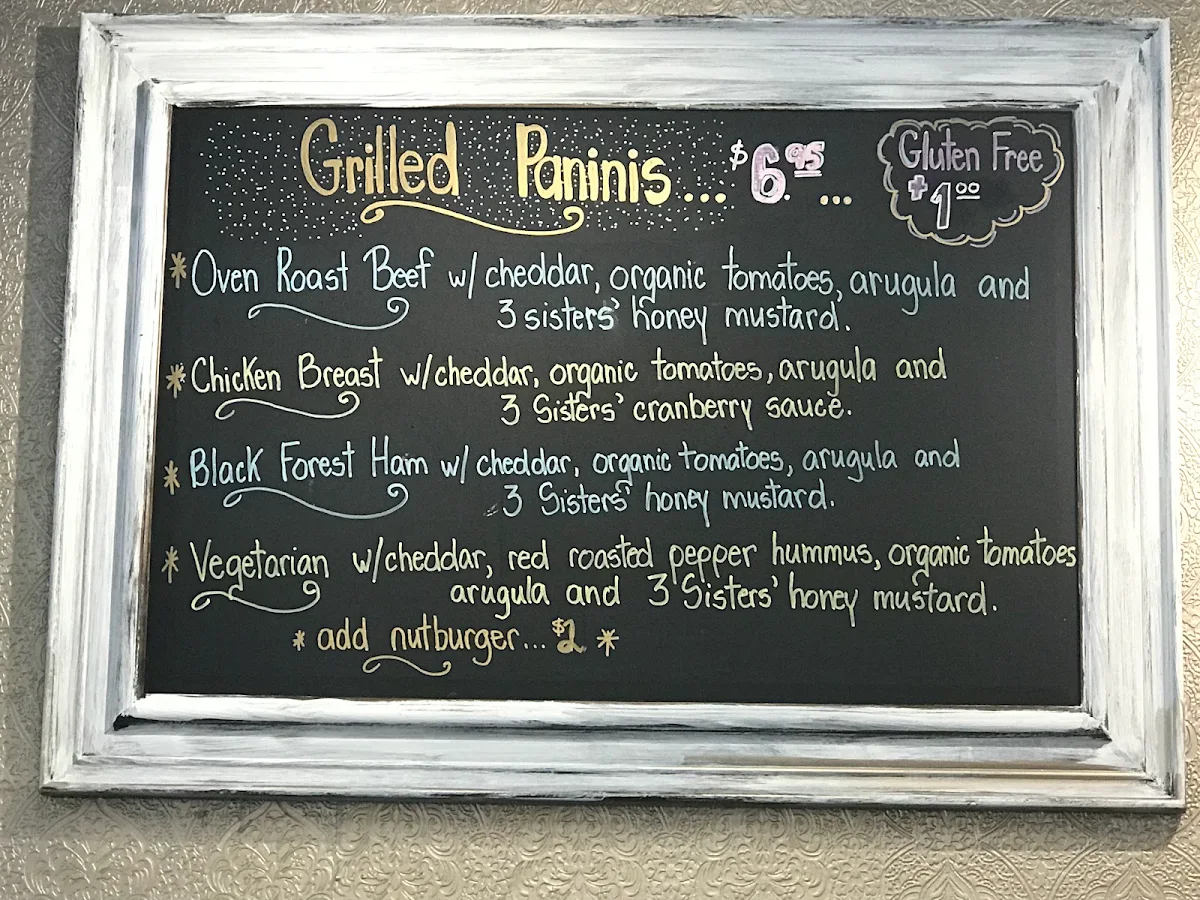 Grilled Paninis... $6.95 ...
Gluten Free
+1.00
*Oven Roast Beef w/ cheddar, organic tomatoes, arugula and
3 sisters' honey mustard.
*Chicken Breast w/cheddar, organic tomatoes, arugula and
3 Sisters' cranberry sauce.
*Black Forest Ham w/ cheddar, organic tomatoes, arugula and
3 Sisters' honey mustard.
*Vegetarian w/cheddar, red roasted pepper hummus, organic tomatoes
arugula and 3 Sisters' honey mustard.
*add nutburger...$2 *